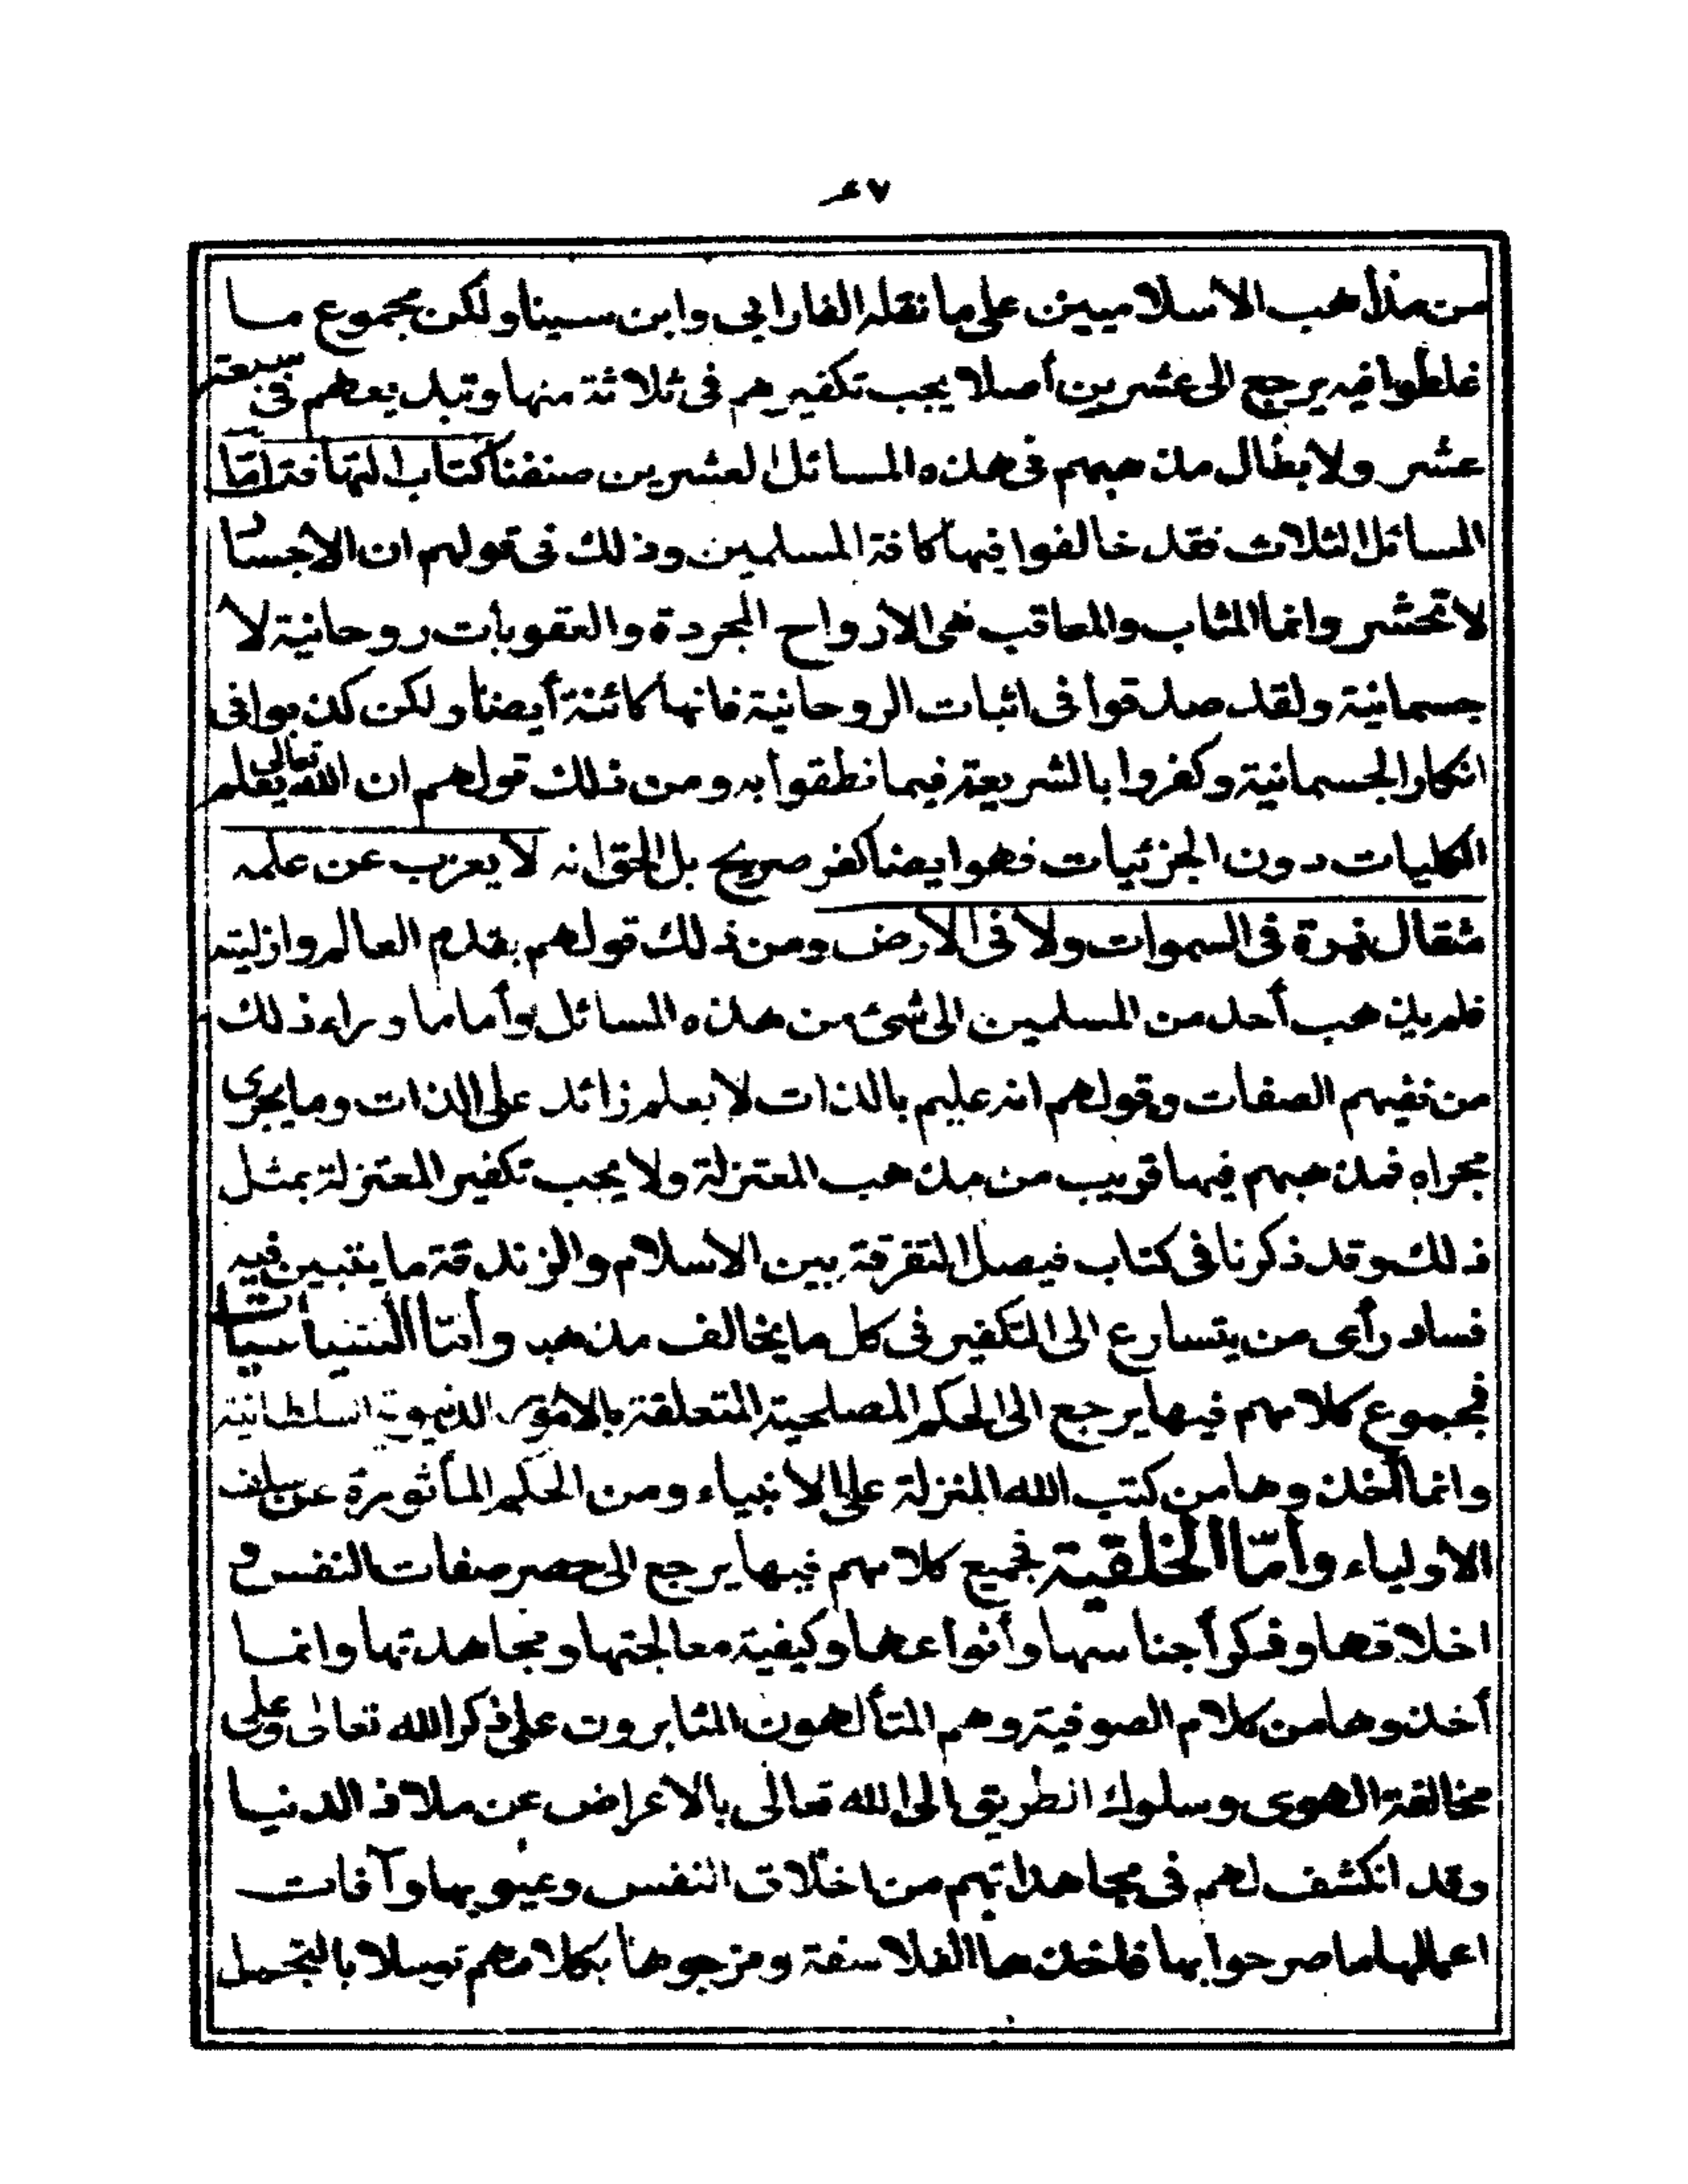 ٤٧
من مذاهب الاسلاميين على ما نقله الفارابى وابن سينا ولكن مجموع ما
غلطوا فيه يرجع الى عشرين أصلا يجب تكفيرهم فى ثلاثة منها وتبديعهم فى سبعة
عشر ولابطال مذهبهم فى هذه المسائل العشرين صنفنا كتاب التهافة امّا
المسائل الثلاث فقد خالفوا فيها كافة المسلمين وذلك فى قولهم ان الاجساد
لا تحشر وانما المثاب والمعاقب هى الارواح المجردة والعقوبات روحانية لا
جسمانية ولقد صدقوا فى اثبات الروحانية فانها كائنة أيضا ولكن كذبوا فى
انكار الجسمانية وكفروا بالشريعة فيما نطقوا به ومن ذلك قولهم ان الله تعالى يعلم
الكليات دون الجزئيات فهو ايضا كفر صريح بل الحق انه لا يعزب عن علمه
مثقال ذرة فى السموات ولا فى الارض ومن ذلك قولهم بقدم العالم وازليته
فلم يذهب أحد من المسلمين الى شئ من هذه المسائل وأما ما وراء ذلك
من نفيهم الصفات وقولهم انه عليم بالذات لا بعلم زائد على الذات وما يجرى
مجراه فمذهبهم فيها قريب من مذهب المعتزلة ولا يجب تكفير المعتزلة بمثل
ذلك وقد ذكرنا فى كتاب فيصل التفرقة بين الاسلام والزندقة ما يتبين فيه
فساد رأى من يتسارع الى التكفير فى كل ما يخالف مذهبه وأمّا السياسيات
فمجموع كلامهم فيها يرجع الى الحكم المصلحية المتعلقة بالأمور الدنيوية السلطانية
وانما أخذوها من كتب الله المنزلة على الانبياء ومن الحكم المأثورة عن سلف
الاولياء وأمّا الخلقية فجميع كلامهم فيها يرجع الى حصر صفات النفس و
اخلاقها وذكر أجناسها وأنواعها وكيفية معالجتها ومجاهدتها وانما
أخذوها من كلام الصوفية وهم المتألهون المثابرون على ذكر الله تعالى وعلى
مخالفة الهوى وسلوك الطريق الى الله تعالى بالاعراض عن ملاذ الدنيا
وقد انكشف لهم فى مجاهداتهم من اخلاق النفس وعيوبها وآفات
اعمالها ما صرحوا بها فاخذها الفلاسفة ومزجوها بكلامهم توسلا بالتجمل